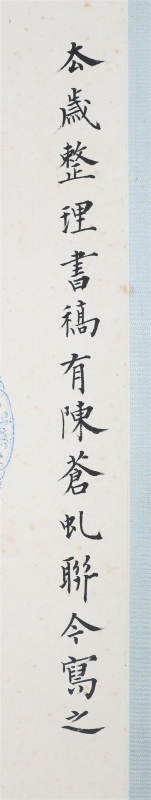 去歲整理書稿有陳蒼虬聯今寫之